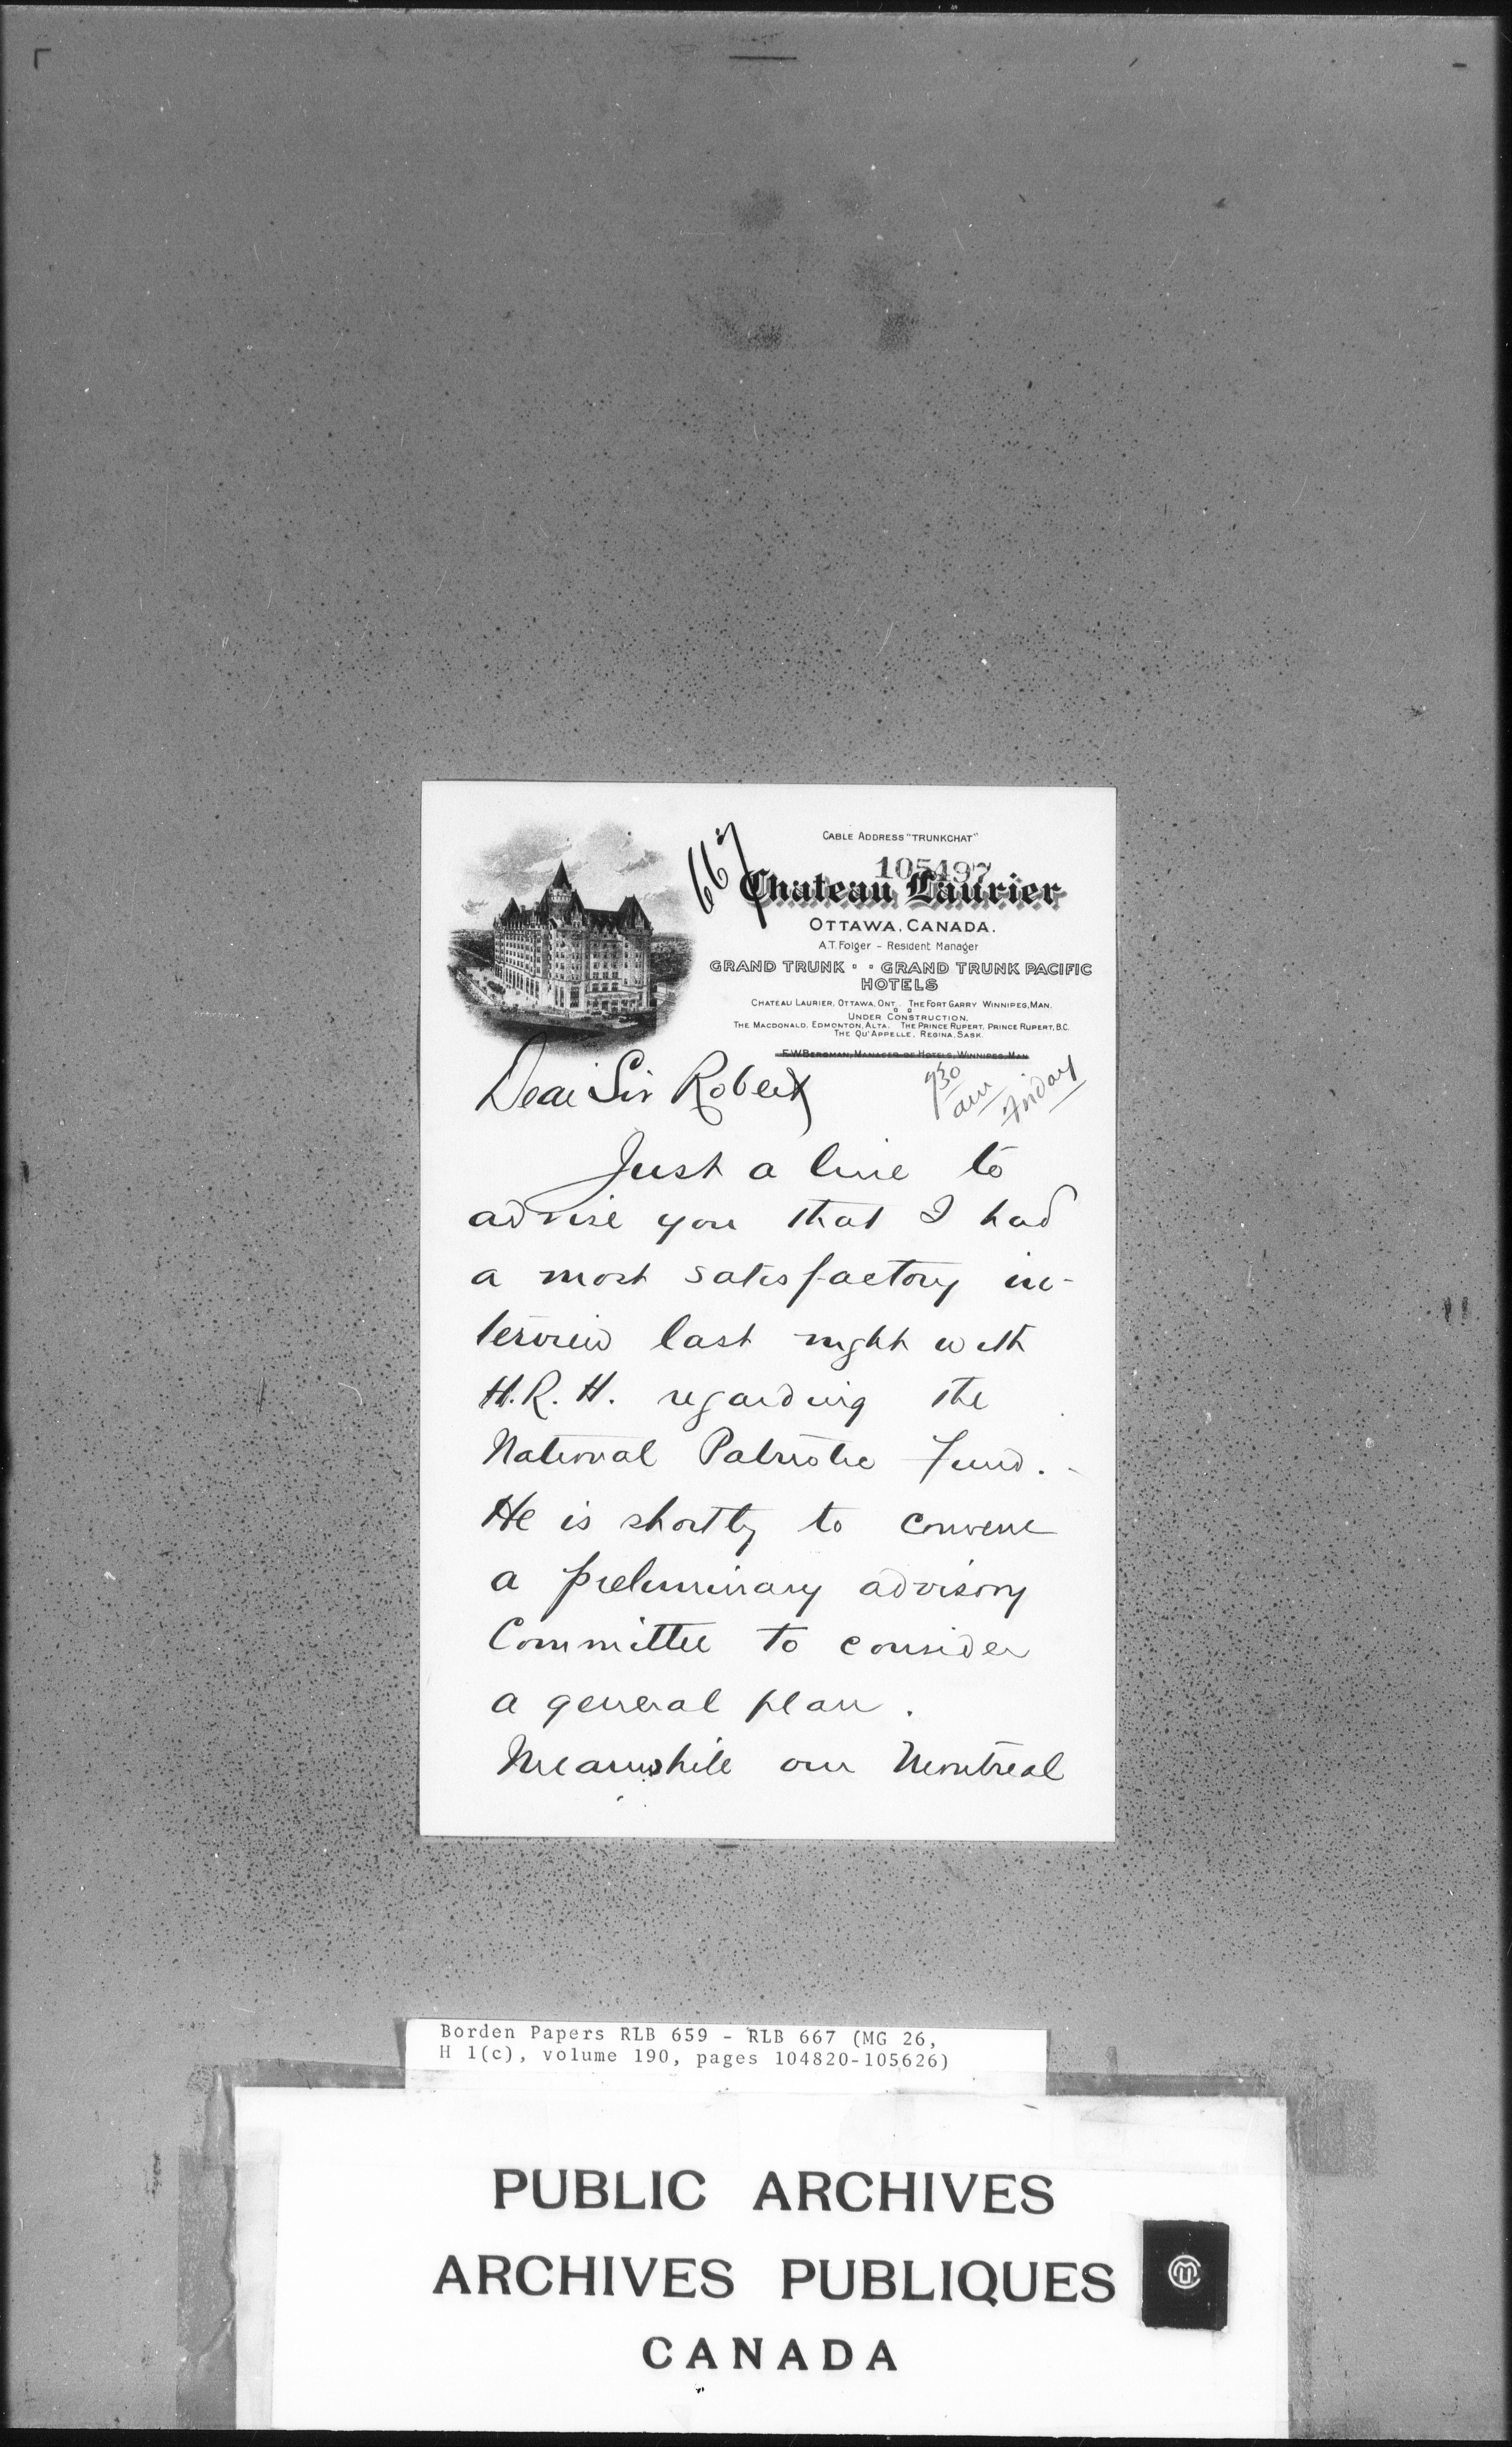 CABLE ADDRESS "TRUNKCHAT"
667
105497
Chateau Laurier
OTTAWA, CANADA.
A.T. Folger - Resident Manager
GRAND TRUNK · · GRAND TRUNK PACIFIC
HOTELS
CHATEAU LAURIER, OTTAWA, ONT. THE FORT GARRY WINNIPEG, MAN.
UNDER CONSTRUCTION.
THE MACDONALD, EDMONTON, ALTA. THE PRINCE RUPERT, PRINCE RUPERT, B.C.
THE QU'APPELLE, REGINA, SASK.
F.W. BERGMAN, MANAGER OF HOTELS, WINNIPEG, MAN
930
am Friday
Dear Sir Robert
Just a line to
advise you that I had
a most satisfactory in-
terview last night with
H.R.H. regarding the
National Patriotic Fund.
He is shortly to convene
a preliminary advisory
Committee to consider
a general plan.
Meanwhile our Montreal
Borden Papers RLB 659 - RLB 667 (MG 26,
H 1(c), volume 190, pages 104820-105626)
PUBLIC ARCHIVES
ARCHIVES PUBLIQUES
CANADA